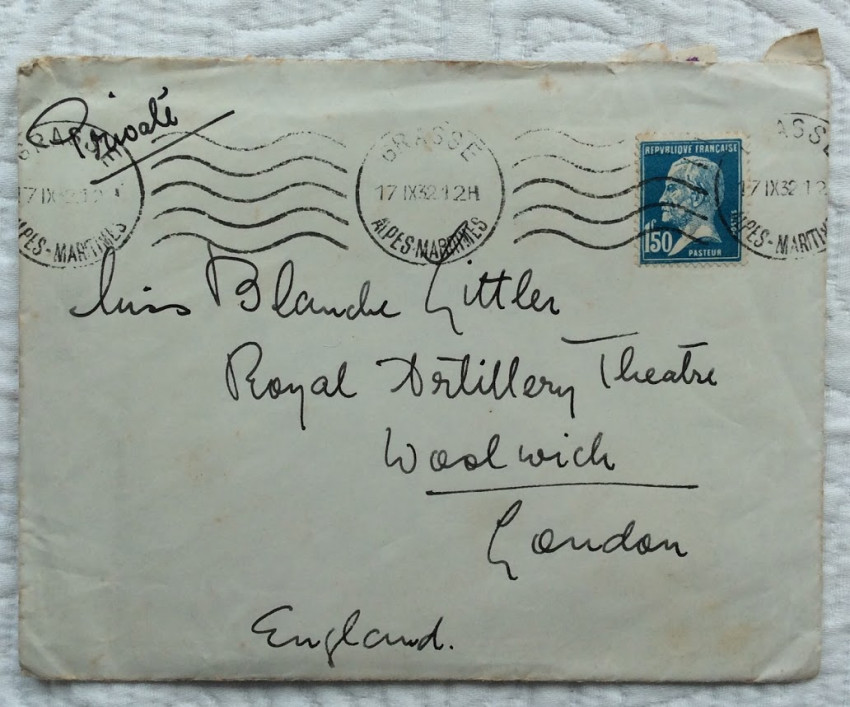 Private
GRASSE
17 IX 32 12H
ALPES-MARITIMES
GRASSE
17 IX 32 12H
ALPES-MARITIMES
REPUBLIQUE FRANÇAISE
1F50
POSTES
PASTEUR
ASSE
17 IX 32 12
ALPES-MARITIM
Miss Blanche Littler
Royal Artillery Theatre
Woolwich
London
England.